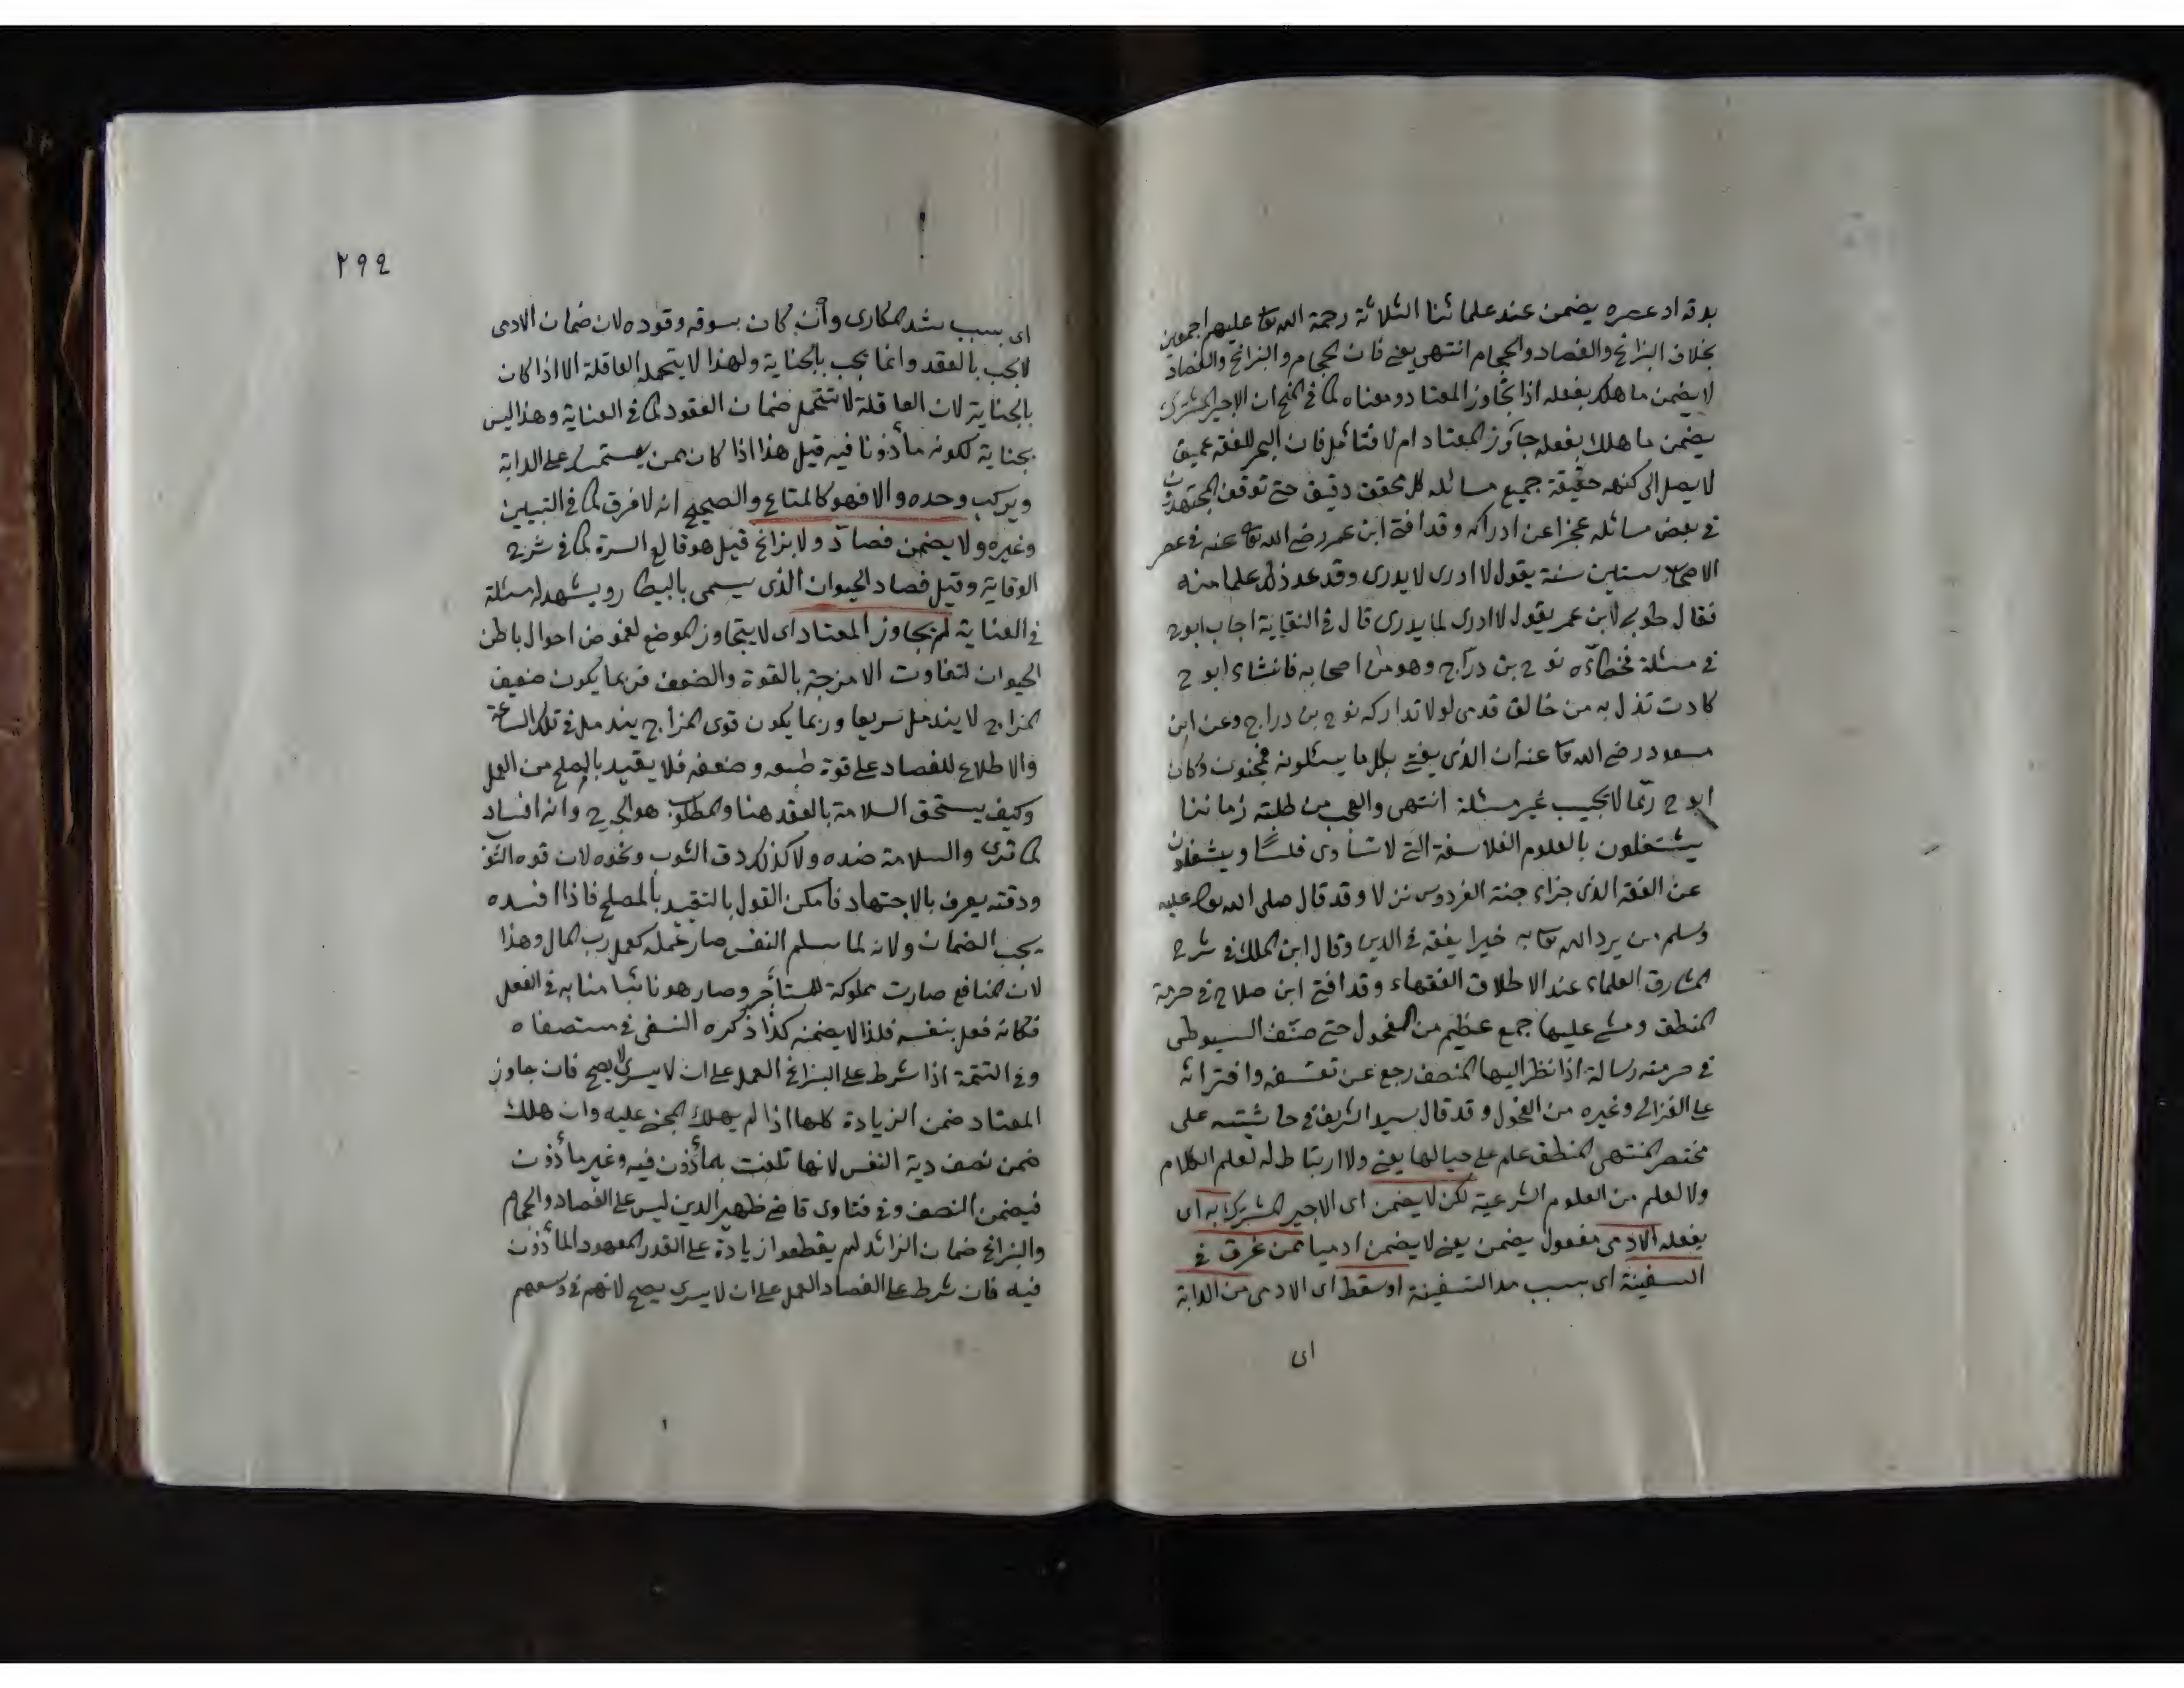 بدقه او عصره يضمن عند علمائنا الثلاثة رحمة الله تعا عليهم اجمعين
بخلاف البزاغ والفصاد والحجام انتهى يعنى فان الحجام والبزاغ والفصاد
لا يضمن ما هلك بفعله اذا تجاوز المعتاد ومعناه كما فى المنح ان الاجير المشترك
يضمن ما هلك بفعله جاوز المعتاد ام لا فتأمل فان البحر للفقه عميق
لا يصل الى كنهه حقيقة جميع مسائله كل محقق دقيق حتى توقف المجتهدون
فى بعض مسائله عجزا عن ادراكه وقد افتى ابن عمر رضى الله تعا عنه فى عصر
الاصحاب ستين سنة يقول لا ادرى لا يدرى وقد عد ذلك علما منه
فقال طوبى لابن عمر يقول لا ادرى لما يدرى قال فى النقاية اجاب ابو ح
فى مسئلة فخطاءه نوح بن درّاج وهو من اصحابه فانشاء ابو ح
كادت تذل به من خالق قدمى لولا تداركه نوح بن دراج وعن ابن
مسعود رضى الله تعا عنه ان الذى يفتى بكل ما يسئلونه لمجنون وكان
ابو ح ربّما لا يجيب غير مسئلة انتهى والعجب من طلبة زماننا
يشتغلون بالعلوم الفلاسفة التى لا تساوى فلسًا ويشغلون
عن الفقه الذى جزاء جنة الفردوس نزلا وقد قال صلى الله تعا عليه
وسلم من يرد الله تعا به خيرا يفقه فى الدين وقال ابن الملك فى شرح
المشارق العلماء عند الاطلاق الفقهاء وقد افتى ابن صلاح فى حرمة
المنطق ومشى عليها جمع عظيم من الفحول حتى صنّف السيوطى
فى حرمته رسالة اذا نظر اليها المنصف رجع عن تعسفه وافترائه
على الغزالى وغيره من الفحول وقد قال سيد الشريف فى حاشيته على
مختصر المنتهى المنطق علم على حيالها يعنى ولا ارتباط له لعلم الكلام
ولا لعلم من العلوم الشرعية لكن لا يضمن اى الاجير المشترك به اى
بفعله الادمى مفعول يضمن يعنى لا يضمن ادميا ممن غرق فى
السفينة اى بسبب مد السفينة او سقط اى الادمى من الدابة
اى
٢٩٤
اى بسبب شد المكارى وان كان بسوقه وقوده لان ضمان الادمى
لا يجب بالعقد وانما يجب بالجناية ولهذا لا يتحمله العاقلة الا اذا كان
بالجناية لان العاقلة لا تتحمل ضمان العقود كما فى العناية وهذا ليس
بجناية لكونه مأذونا فيه قيل هذا اذا كان ممن يستمسك على الدابة
ويركب وحده والا فهو كالمتاع والصحيح انه لا فرق كما فى التبيين
وغيره ولا يضمن فصاد ولا بزاغ قيل هو قالع السرة كما فى شرح
الوقاية وقيل فصاد الحيوان الذى يسمى بالبيطار ويشهد له مسئلة
فى العناية لم يجاوز المعتاد اى لا يتجاوز الموضع لغموض احوال باطن
الحيوان لتفاوت الامزجة بالقوة والضعف فربما يكون ضعيف
المزاج لا يندمل سريعا وربما يكون قوى المزاج يندمل فى تلك الساعة
والاطلاع للفصاد على قوة طبعه وضعفه فلا يقيد بالمصلح من العمل
وكيف يستحق السلامة بالعقد هنا والمطلوب هو الجرح وانه افساد
كما ترى والسلامة ضده ولا كذلك دق الثوب ونحوه لان قوة الثوب
ودقته يعرف بالاجتهاد فامكن القول بالتقييد بالمصلح فاذا افسده
يجب الضمان ولانه لما سلم النفس صار عمله كعمل رب المال وهذا
لان المنافع صارت مملوكة للمستأجر وصار هو نائبا منابه فى الفعل
فكانه فعل بنفسه فلذا لا يضمنه كذا ذكره النسفى فى مستصفاه
وفى التتمة اذا شرط على البزاغ العمل على ان لا يسرى لا يصح فان جاوز
المعتاد ضمن الزيادة كلها اذا لم يهلك المجنى عليه وان هلك
ضمن نصف دية النفس لانها تلفت بمأذون فيه وغير مأذون
فيضمن النصف وفى فتاوى قاضى ظهير الدين ليس على الفصاد والحجام
والبزاغ ضمان الزائد لم يقطعوا زيادة على القدر المعهود المأذون
فيه فان شرط على الفصاد العمل على ان لا يسرى يصح لانهم فى وسعهم